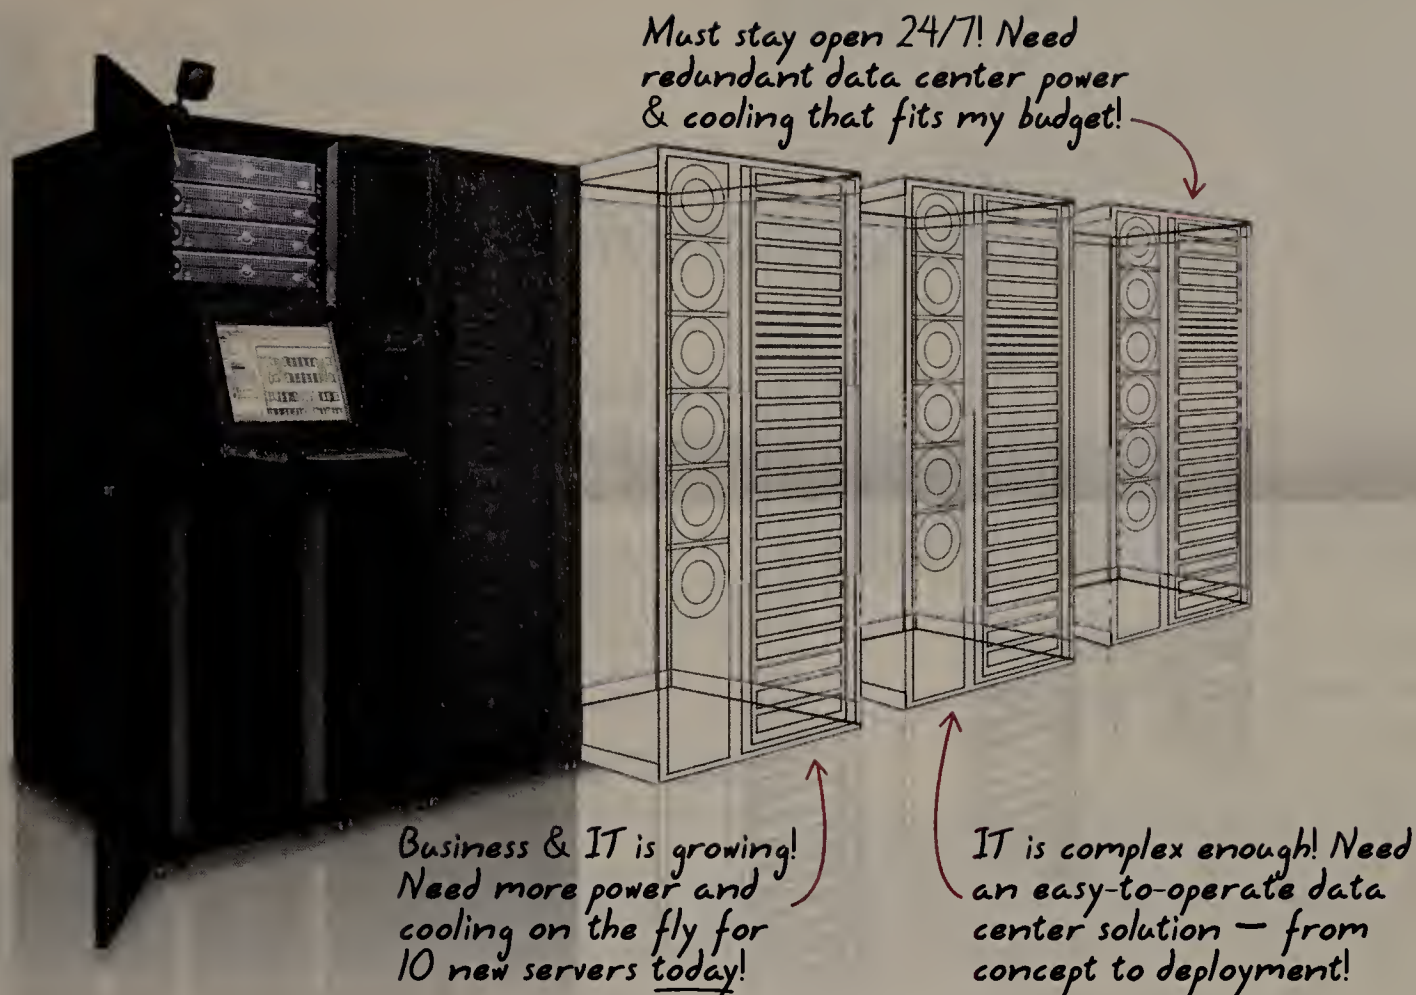 Must stay open 24/7! Need
redundant data center power
& cooling that fits my budget!
Business & IT is growing!
Need more power and
cooling on the fly for
10 new servers today!
IT is complex enough! Need
an easy-to-operate data
center solution — from
concept to deployment!